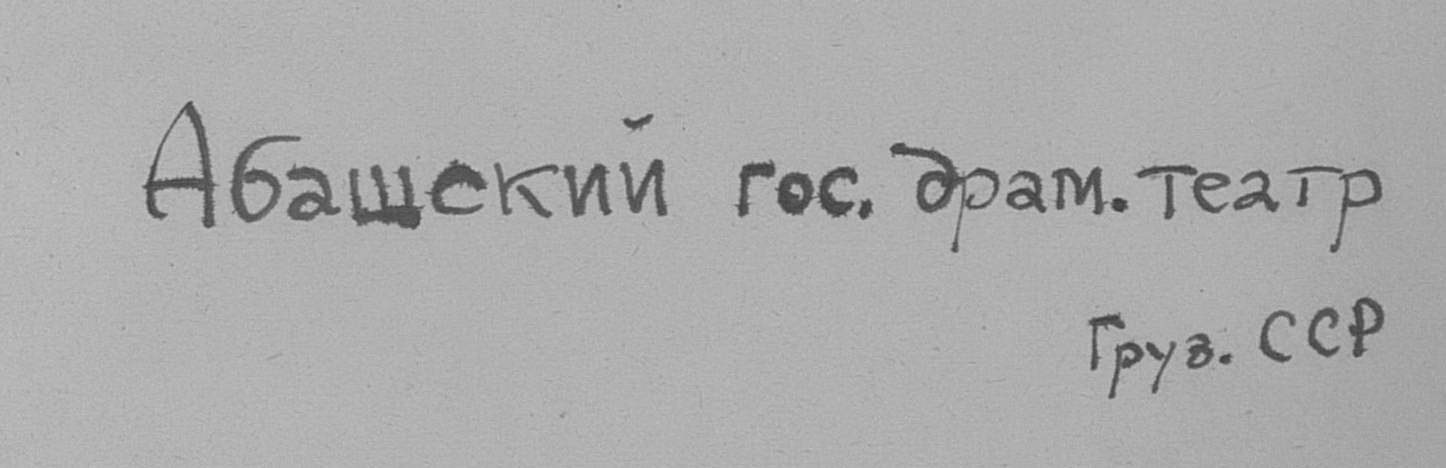 Абашский гос. драм. театр
Груз. ССР